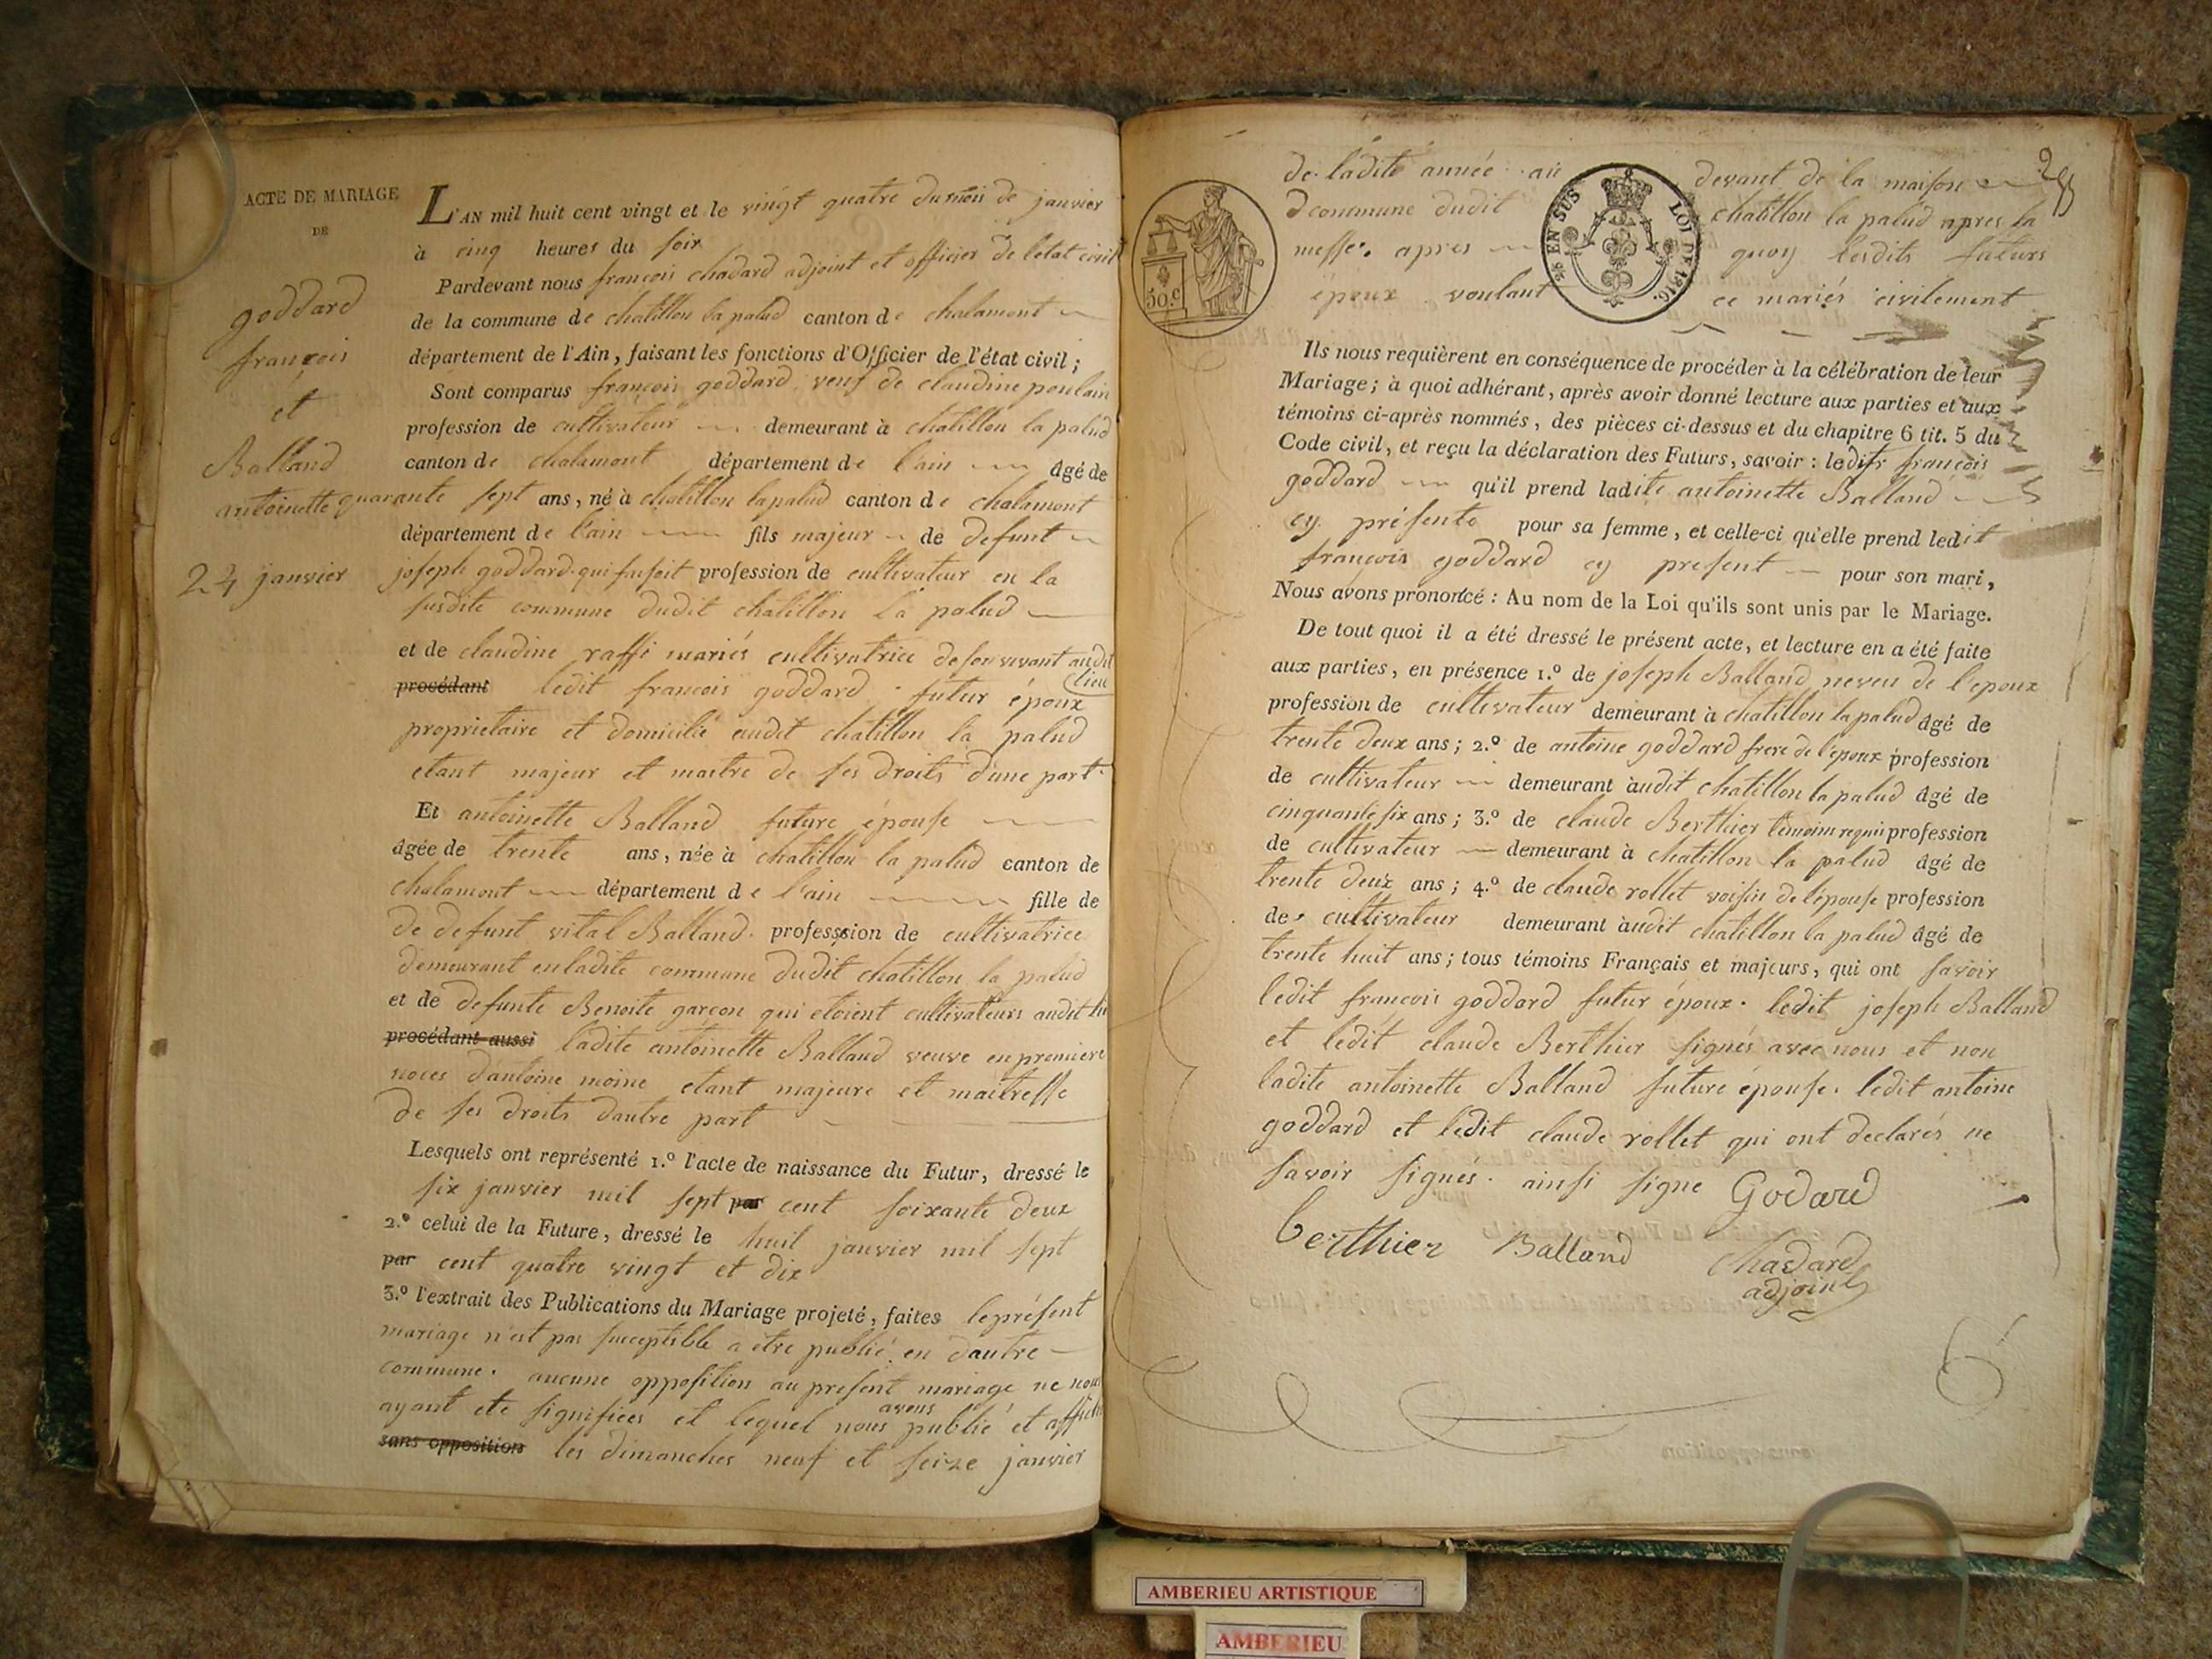 ACTE DE MARIAGE
DE
goddard
francois
et
Balland
antoinette
24 janvier
L'AN mil huit cent vingt et le vingt quatre du mois de janvier
à cinq heures du soir
Pardevant nous francois chadard adjoint et officier de letat civil
de la commune de chatillon la palud canton de chalamont
département de l'Ain, faisant les fonctions d'Officier de l'état civil;
Sont comparus françois goddard veuf de claudine poulain
profession de cultivateur demeurant à chatillon la palud
canton de chalamont département de l'ain âgé de
quarante sept ans, né à chatillon la palud canton de chalamont
département de l'ain fils majeur de defunt
joseph goddard qui faisoit profession de cultivateur en la
susdite commune dudit chatillon la palud
et de claudine raffi mariés cultivatrice de son vivant audit
lieu
procédant ledit francois goddard futur époux
proprietaire et domicilié audit chatillon la palud
etant majeur et maitre de ses droits d'une part
Et antoinette Balland future épouse
âgée de trente ans, née à chatillon la palud canton de
chalamont département de l'ain fille de
de defunt vital Balland profession de cultivatrice
demeurant en ladite commune dudit chatillon la palud
et de defunte Benoite garcon qui etoient cultivateurs audit lieu
procédant aussi ladite antoinette Balland veuve en premiere
noces d'antoine moine etant majeure et maitresse
de ses droits dautre part
Lesquels ont représenté 1.º l'acte de naissance du Futur, dressé le
six janvier mil sept par cent soixante deux
2.º celui de la Future, dressé le huit janvier mil sept
par cent quatre vingt et dix
3.º l'extrait des Publications du Mariage projeté, faites le présent
mariage n'est pas susceptible a etre publié en dautre
commune. aucune opposition au present mariage ne nous
ayant ete signifiées et lequel nous avons publié et affiché
sans opposition les dimanches neuf et seize janvier
28
de ladite année au devant de la maison
d commune dudit chatillon la palud apres la
messe. apres quoy lesdits futurs
époux voulant ce mariés civilement
50 c
2/5 EN SUS
LOI DE 1816.
Ils nous requièrent en conséquence de procéder à la célébration de leur
Mariage; à quoi adhérant, après avoir donné lecture aux parties et aux
témoins ci-après nommés, des pièces ci-dessus et du chapitre 6 tit. 5 du
Code civil, et reçu la déclaration des Futurs, savoir: ledit francois
goddard qu'il prend ladite antoinette Balland
cy présente pour sa femme, et celle-ci qu'elle prend ledit
françois goddard cy present pour son mari,
Nous avons prononcé: Au nom de la Loi qu'ils sont unis par le Mariage.
De tout quoi il a été dressé le présent acte, et lecture en a été faite
aux parties, en présence 1.º de joseph Balland neveu de l'epoux
profession de cultivateur demeurant à chatillon la palud âgé de
trente deux ans; 2.º de antoine goddard frere de l'epoux profession
de cultivateur demeurant audit chatillon la palud âgé de
cinquante six ans; 3.º de claude Berthier témoins requis profession
de cultivateur demeurant à chatillon la palud âgé de
trente deux ans; 4.º de claude rollet voisin de l'épouse profession
de cultivateur demeurant audit chatillon la palud âgé de
trente huit ans; tous témoins Français et majeurs, qui ont savoir
ledit francois goddard futur époux. ledit joseph Balland
et ledit claude Berthier signés avec nous et non
ladite antoinette Balland future épouse. ledit antoine
goddard et ledit claude rollet qui ont declarés ne
savoir signés. ainsi signe Godard
berthier Balland chadard
adjoint
AMBERIEU ARTISTIQUE
AMBERIEU